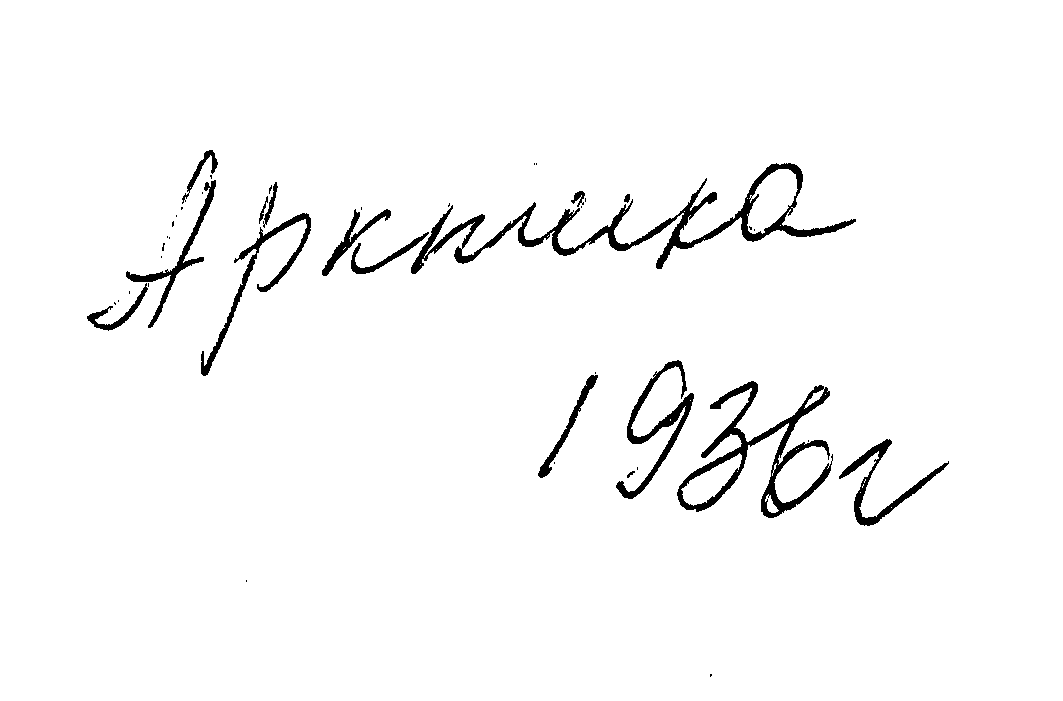 Арктика
1936г